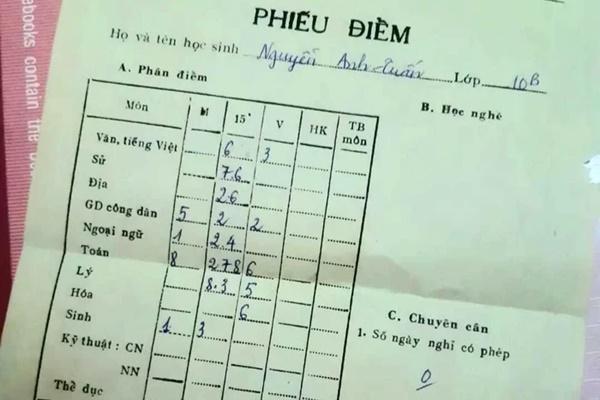 abooks contain the
PHIẾU ĐIỂM
Họ và tên học sinh Nguyễn Anh-Tuấn Lớp 10B
A. Phần điểm
B. Học nghề
Môn M 15' V HK TB môn
Văn, tiếng Việt 6 3
Sử 7.6
Địa 2.6
GD công dân 5 2 2
Ngoại ngữ 1 2 4
Toán 8 2 7 8 6
Lý 8.3 5
Hóa 6
Sinh 1 3
Kỹ thuật : CN
NN
Thể dục
C. Chuyên cần
1. Số ngày nghỉ có phép
0